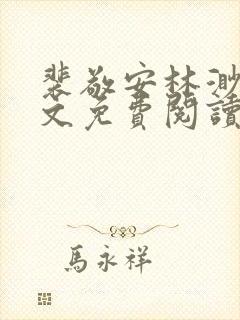 裴敬安林渺
文免費閱讀
馬永祥